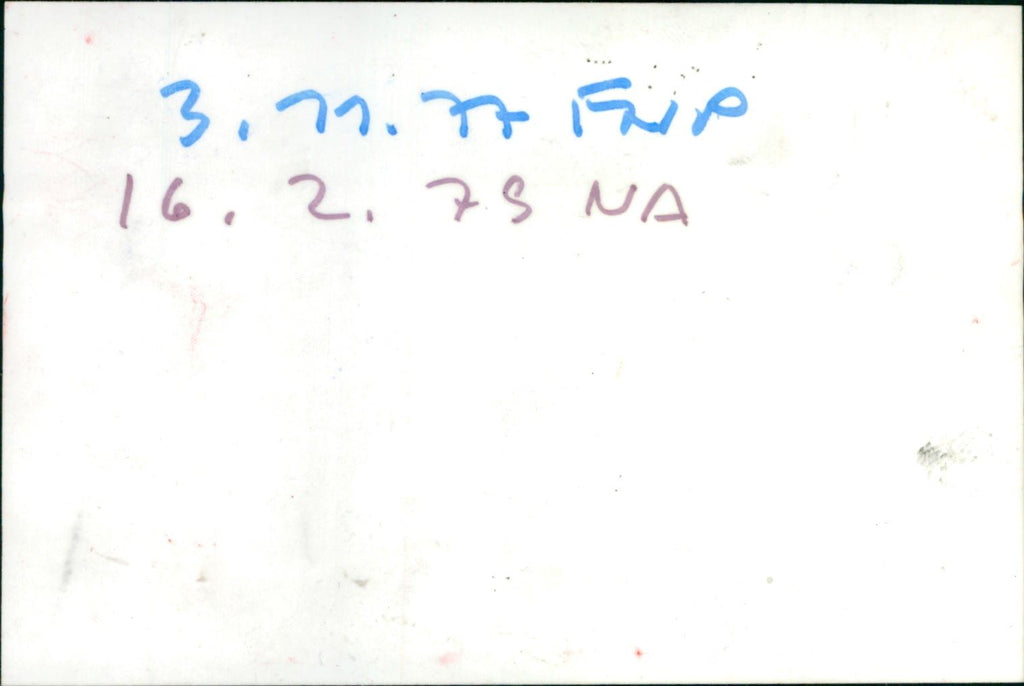 3.11.77 FNP
16.2.79 NA